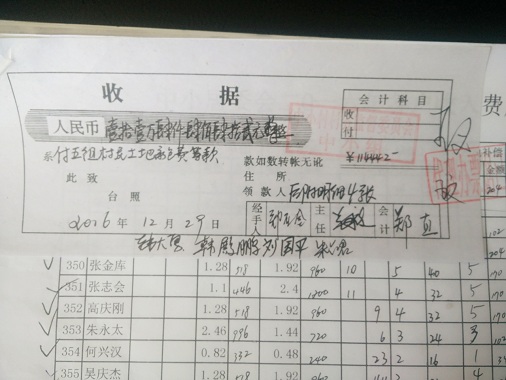 收 据
会计科目
收
付
费
人民币 壹拾壹万肆仟肆佰肆拾贰元整
¥114442—
系 付五组村民土地承包费等款
款如数转帐无讹
此致
住所
台照
领款人 后附明细4张
2016年12月29日
经手人
主任
会计 郑直
韩鹏鹏 刘国平
补偿
金额
350 张金库 1.28 518 1.92 960 10 5 40 5 170
351 张志会 1.1 446 2.4 1200 11 4 32 5 170
352 高庆刚 1.28 518 1.92 960 9 4 32 5 170
353 朱永太 2.46 996 1.44 720 6 3 24 3 102
354 何兴汉 0.82 332 0.48 240 2 3 2 16 1 34
355 吴庆杰 1.28 518 1.92 960